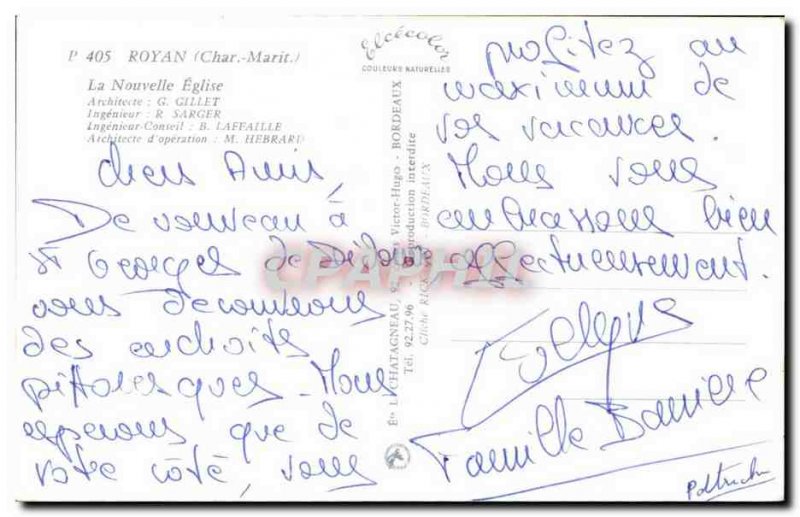 P 405 ROYAN (Char.-Marit.)
La Nouvelle Église
Architecte : G. GILLET
Ingénieur : R. SARGER
Ingénieur-Conseil : B. LAFFAILLE
Architecte d'opération : M. HEBRARD
Elcécolor
COULEURS NATURELLES
chers Amis,
De nouveau à
St Georges de Didonne
nous découvrons
des endroits
pittoresques. Nous
esperons que de
votre côté, vous
profitez au
maximum de
vos vacances.
Nous vous
embrassons bien
affectueusement.
Famille Barriere
CHATAGNEAU, Victor-Hugo - BORDEAUX
Tél. 92.27.96 - Reproduction interdite
Cliché BORDEAUX
CPARAMA